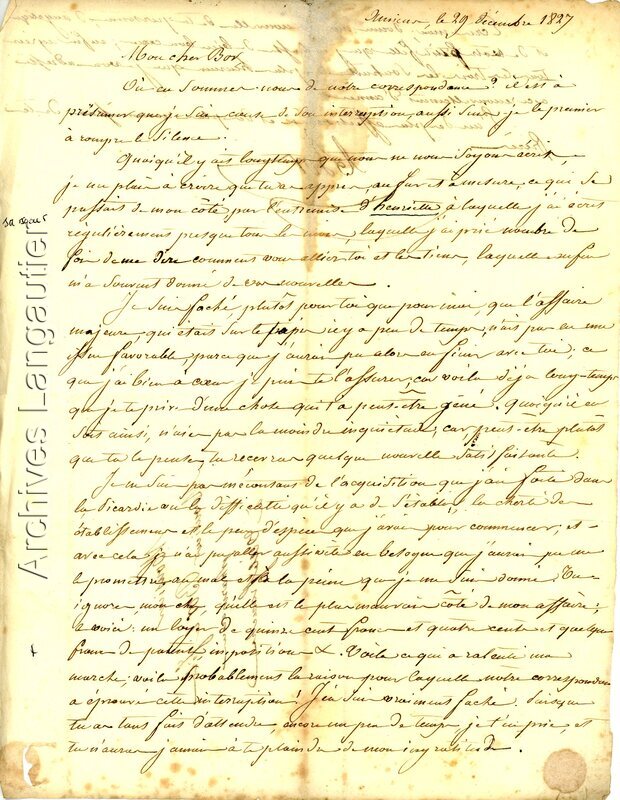 Amiens, le 29 Décembre 1827
Mon cher Bor
Où en sommes nous de nôtre correspondance? il est à
présumer que je suis cause de son interruption, aussi suis-je le premier
à rompre le silence.
Quoiqu'il y ait longtemps que nous ne nous soyons écrit,
je me plais à croire que tu as appris au fur et à mesure, ce qui se
passait de mon côté par l'entremise d'henriette à laquelle j'ai écris
sa sœur
régulièrement presque tous les mois, laquelle j'ai prié nombre de
fois de me dire comment vous alliez toi et les tiens, laquelle enfin
m'a souvent donné de vos nouvelles.
Je suis faché plutôt pour toi que pour moi que l'affaire
majeure qui était sur le tapis il y a peu de temps, n'ait pas eu une
issue favorable parce que j'aurais pu alors en finir avec toi; ce
que j'ai bien à cœur je puis te l'assurer, car voila déja long-temps
que je te prive d'une chose qui t'a peut-être gêné. Quoiqu'il en
soit ainsi, n'aies pas la moindre inquiétude; car peut-être plutôt
que tu le penses, tu recevras quelque nouvelle satisfaisante.
Je ne suis pas mécontent de l'acquisition que j'ai faite dans
la Picardie la difficulté qu'il y a de s'établir, la cherté de
établissemens et le peu d'espèces que j'avais pour commencer, et
avec cela je n'ai pu aller aussi vite en besogne que j'aurais pu me
le promettre au mal et à la peine que je me suis donné. Tu
ignores mon cher, quelle est le plus mauvais côté de mon affaire;
le voici: un loyer de quinze cent francs et quatre cents et quelques
francs de patente, impositions &. Voila ce qui a ralenti ma
marche; voila probablement la raison pour laquelle notre correspondance
a éprouvé cette interruption! J'en suis vraiment faché. Puisque
tu as tant fais d'attendre, encore un peu de temps, je t'en prie, et
tu n'auras jamais à te plaindre de mon ingratitude.
Archives Langautier